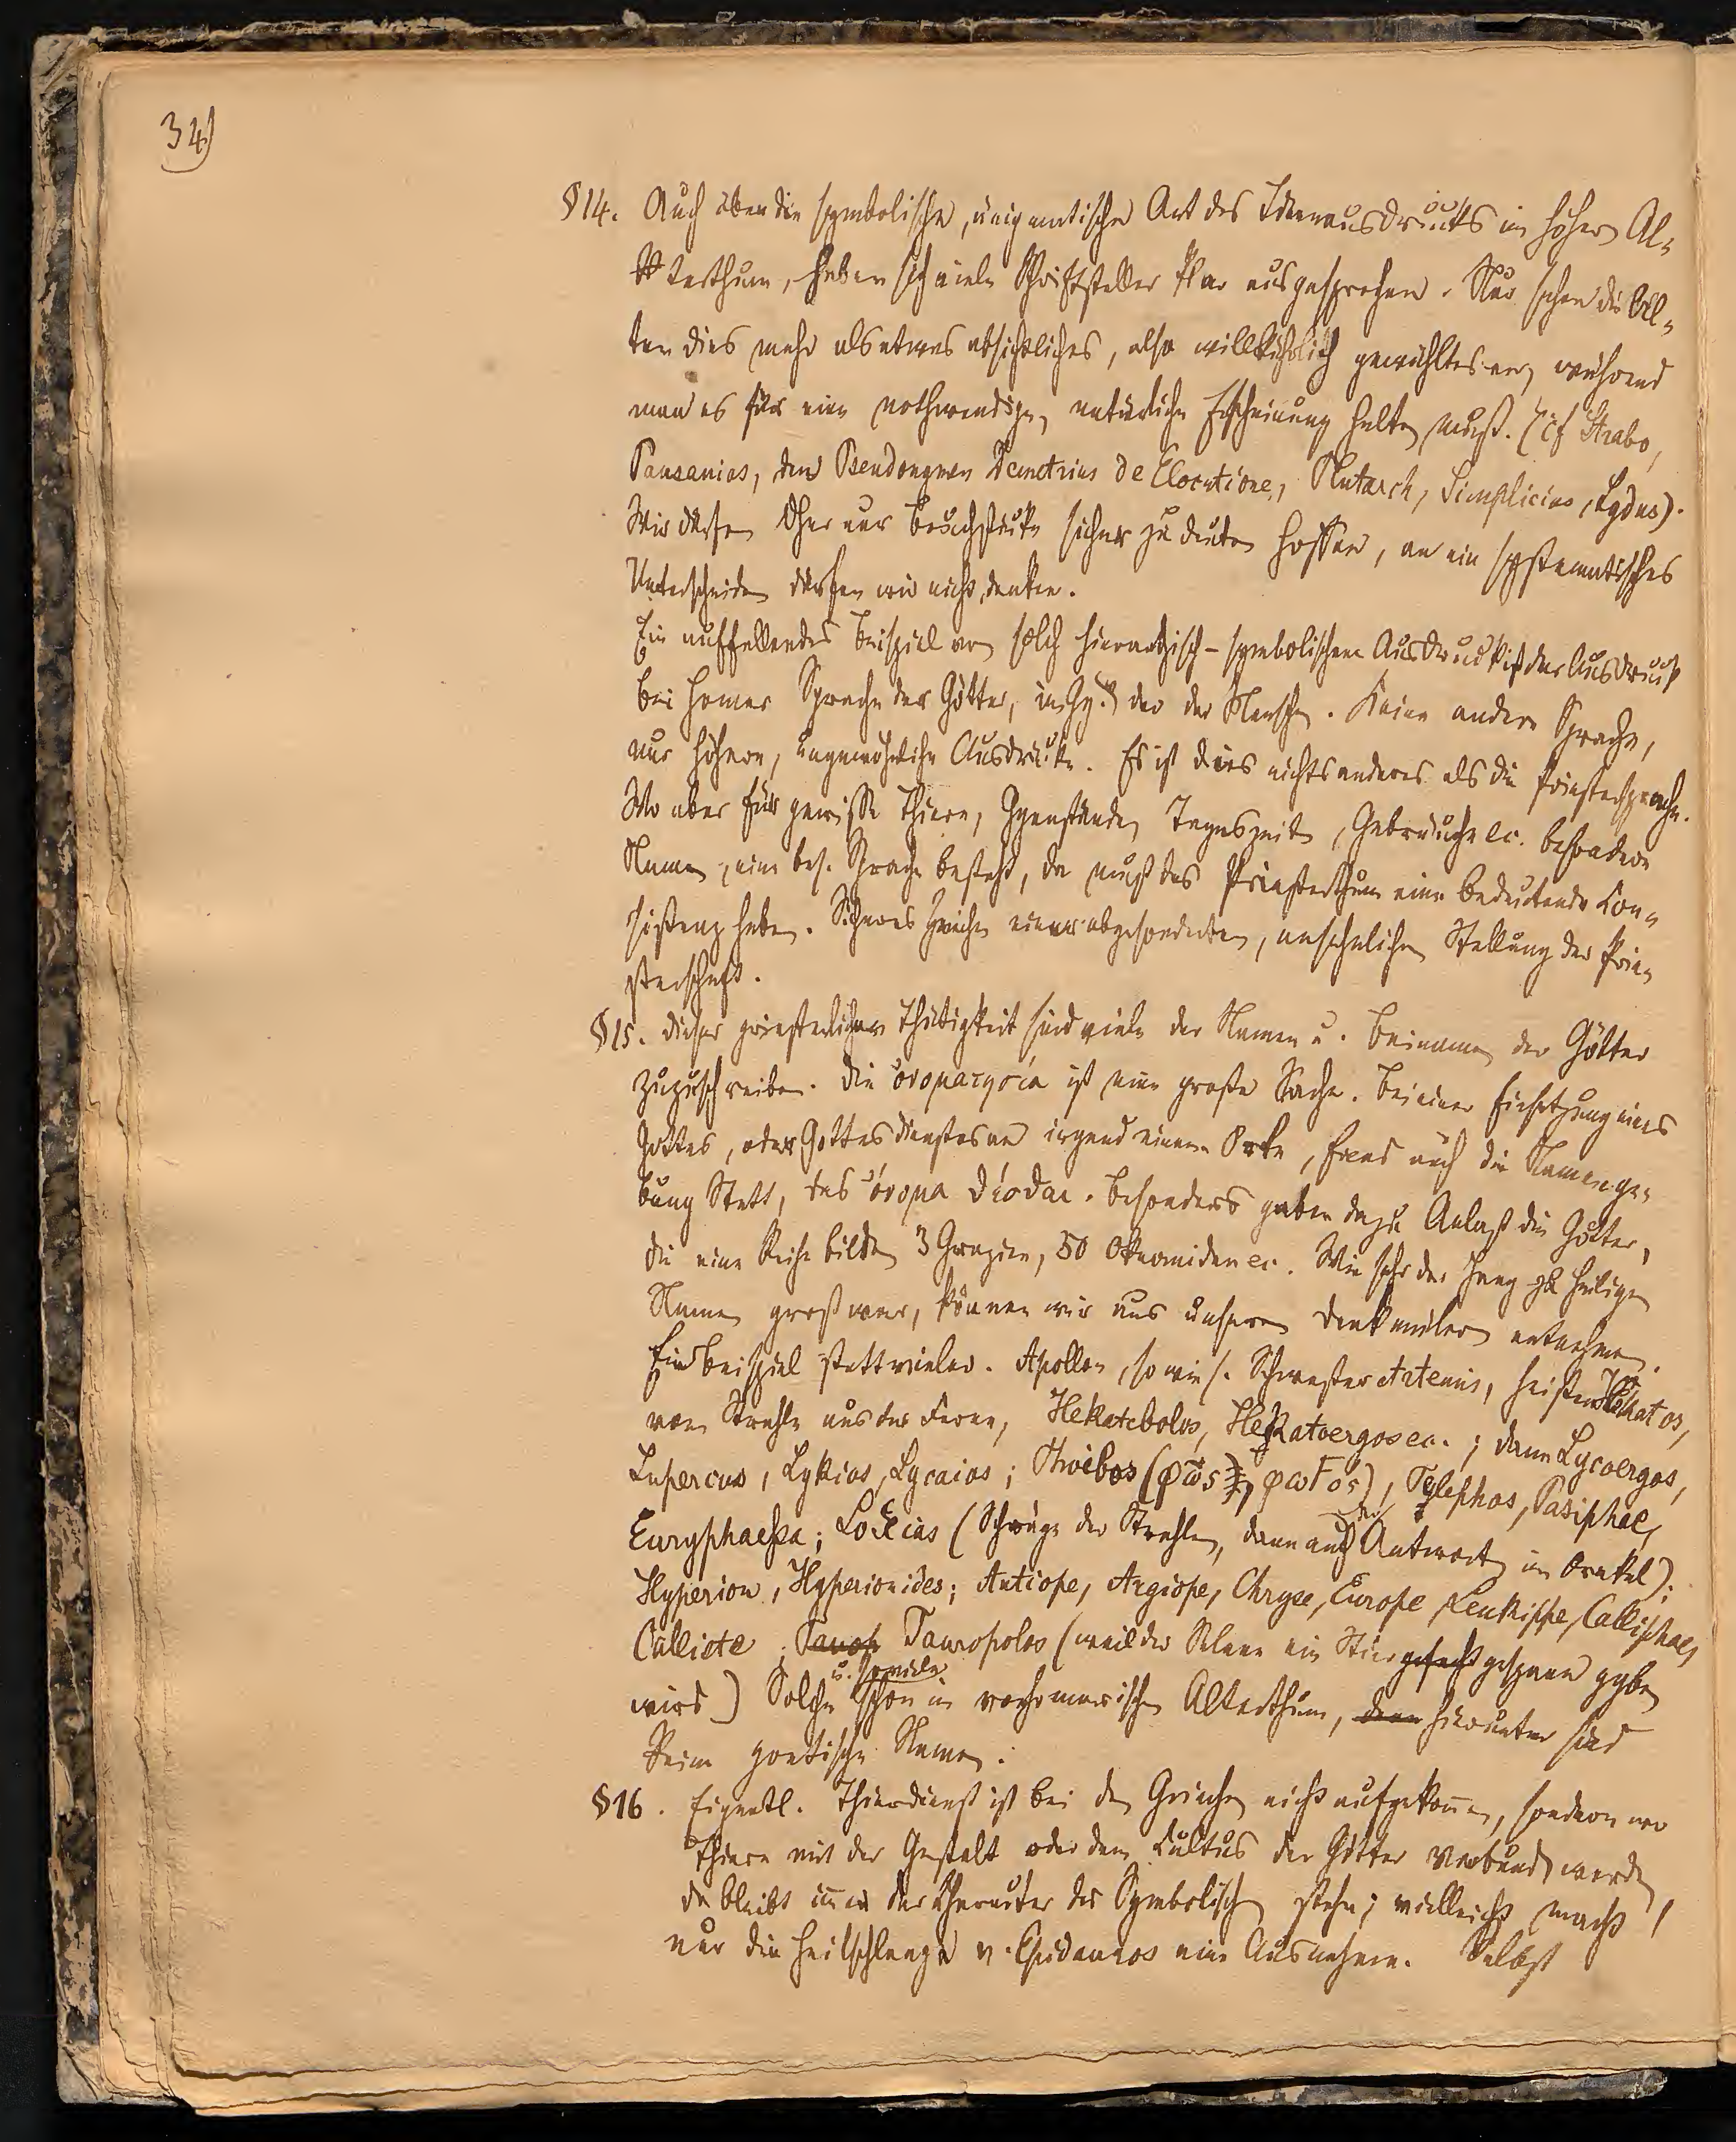 34)
§14. Auch über die symbolische, änigmatische Art des Ideenausdrucks im höhern Al=
terthum, haben sich viele Schriftsteller klar ausgesprochen. Nur sehen die Al=
ten dies mehr als etwas absichtliches, also willkührlich gewähltes an, während
man es für eine nothwendige, natürliche Erscheinung halten muß. (cf Strabo,
Pausanias, den Pseudonymen Demetrius de Elocutione, Plutarch, Simplicius, Lydus).
Wir dürfen aber nur Bruchstücke sicher zu deuten hoffen, an ein systematisches
Unterscheiden dürfen wir nicht denken.
Ein auffallendes Beispiel von solch hieratisch-symbolischem Ausdruck ist der Ausdruck
bei Homer Sprache der Götter, im Ggs. der der Menschen. Keine andere Sprache,
nur höhere, ungewöhnliche Ausdrücke. Es ist dies nichts anderes als die Priestersprache.
Wo aber für gewisse Thiere, Gegenstände, Tageszeiten, Gebräuche ec. besondere
Namen, eine bes. Sprache besteht, da muß das Priesterthum eine bedeutende Con=
sistenz haben. Sicheres Zeichen einer abgesonderten, ansehnlichen Stellung der Prie=
sterschaft.
§15. Dieser priesterlichen Thätigkeit sind viele der Namen u. Beinamen der Götter
zuzuschreiben. Die ὀνομαςγσία ist eine große Sache. Bei einer Einsetzung eines
Gottes, oder Gottesdienstes an irgend einem Orte, fand auch die Namenge=
bung Statt, das ὄνομα δίοδαι. Besonders gaben dazu Anlaß die Götter,
die eine Reihe bilden 3 Grazien, 50 Okeaniden ec. Wie sehr der Hang zu heiligen
Namen groß war, können wir aus unseren Denkmälern entnehmen.
Ein Beispiel statt vieler. Apollon, so wie s. Schwester Artemis, heißen Hekatos,
vom Strahle aus der Ferne, Hekatebolos, Hekatoergos ec.; dann Lycoergos,
Lupercus, Lykios, Lycaios; Phoibos (φῶς, φωFος), Telephos, Pasiphae,
Euryphaessa; Loxias (Schräge der Strahlen, dann auch der Antwort im Orakel);
Hyperion, Hyperionides; Antiope, Argiope, Chryse, Europe, Leukippe, Calliphae,
Calliste; Tauropolos (weil der Selene ein Stiergespann gegeben
wird) Solche u. so viele schon im vorhomerischen Alterthum, hierunter sind
keine poetischen Namen.
§16. Eigentl. Thierdienst ist bei den Griechen nicht aufgekommen, sondern wo
Thiere mit der Gestalt oder dem Cultus der Götter verbunden werden,
da bleibt immer der Charakter des Symbolischen stehn; vielleicht macht
nur die Heilschlange v. Epidauros eine Ausnahme. Selbst